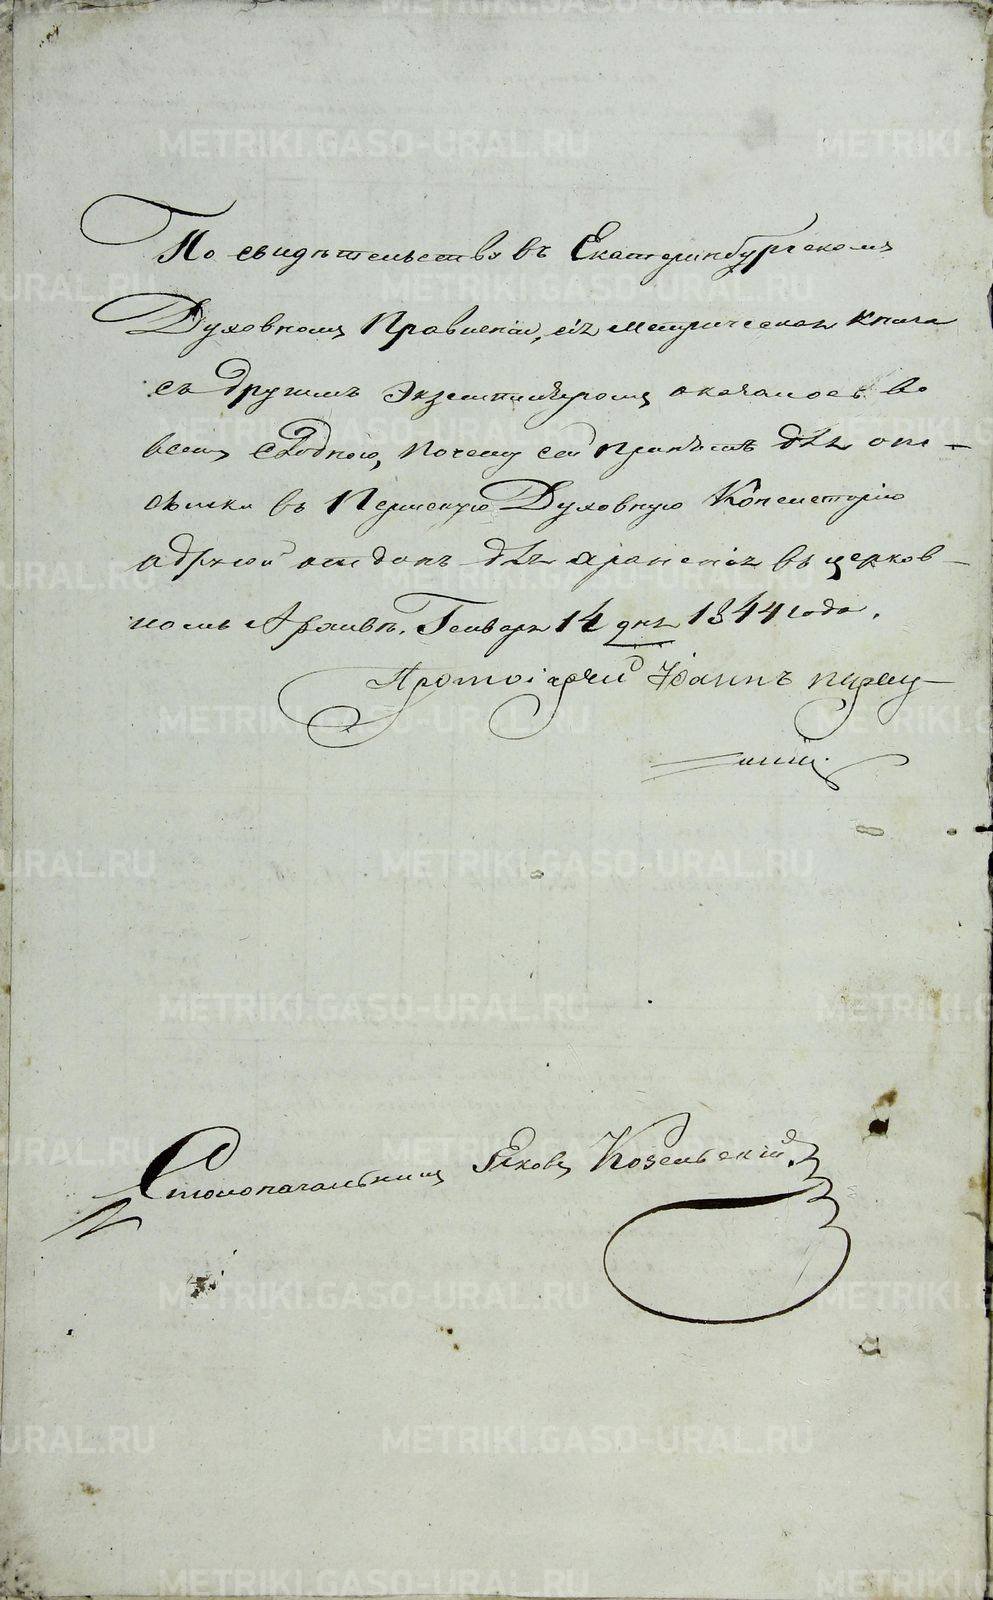 По свидѣтельству въ Екатеринбургскомъ
Духовномъ Правленіи, сія метрическая книга
съ другимъ Экземпляромъ оказалось во
всемъ сходною, почему сей принятъ для отс-
сылки въ Пермскую Духовную Консисторію
а другой отданъ для храненія въ церков-
номъ Архивѣ. Генваря 14 дня 1844 года.
Протоіерей Іоаннъ
Столоначальникъ Яковъ Козельскій
METRIKI.GASO-URAL.RU